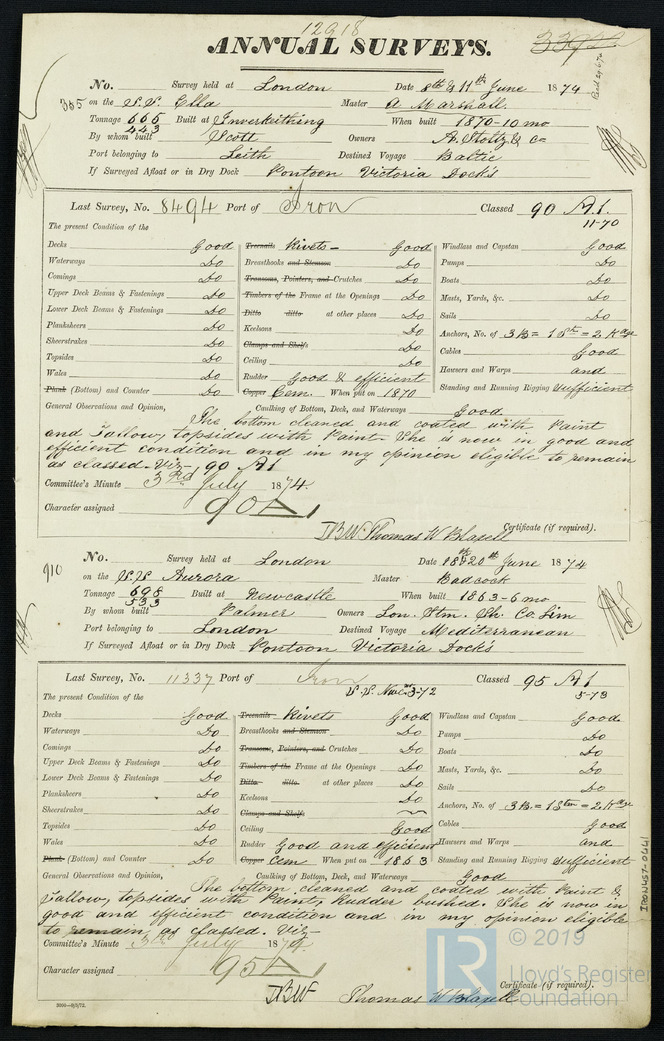 12918
ANNUAL SURVEYS.
No. Survey held at London Date 8th & 11th June 1874
305 on the S.S. Ella Master A Marshall.
Tonnage 665 Built at Inverkeithing When built 1870-10 mo
443
By whom built Scott Owners A. Stoltz & Co
Port belonging to Leith Destined Voyage Baltic
If Surveyed Afloat or in Dry Dock Pontoon Victoria Docks
Last Survey, No. 8494 Port of Iron Classed 90 A1.
11-70
The present Condition of the
Decks Good Treenails Rivets - Good Windlass and Capstan Good
Waterways Do Breasthooks and Stemson Do Pumps Do
Comings Do Transoms, Pointers, and Crutches Do Boats Do
Upper Deck Beams & Fastenings Do Timbers of the Frame at the Openings Do Masts, Yards, &c. Do
Lower Deck Beams & Fastenings Do Ditto ditto at other places Do Sails Do
Planksheers Do Keelsons Do Anchors, No. of 3B = 1 Stm = 2 Kdge
Sheerstrakes Do Clamps and Shelfs Do Cables Good
Topsides Do Ceiling Do Hawsers and Warps and
Wales Do Rudder Good & efficient Standing and Running Rigging Sufficient
Plank (Bottom) and Counter Do Copper Cem. When put on 1870
General Observations and Opinion, Caulking of Bottom, Deck, and Waterways Good
The bottom cleaned and coated with Paint
and Tallow, topsides with Paint - She is now in good and
efficient condition and in my opinion eligible to remain
as classed - Viz - 90 A1
Committee's Minute 3rd July 1874.
Character assigned 90 A1
Thomas W Blaxell Certificate (if required).
910 No. Survey held at London Date 18th & 20th June 1874
on the S.S. Aurora Master Badcock
Tonnage 698 Built at Newcastle When built 1863-6 mo
533
By whom built Palmer Owners Lon. Stm. Sh. Co. Lim
Port belonging to London Destined Voyage Mediterranean
If Surveyed Afloat or in Dry Dock Pontoon Victoria Docks
Last Survey, No. 11337 Port of Iron Classed 95 A1
5-73
The present Condition of the
Decks Good Treenails Rivets Good Windlass and Capstan Good
Waterways Do Breasthooks and Stemson Do Pumps Do
Comings Do Transoms, Pointers, and Crutches Do Boats Do
Upper Deck Beams & Fastenings Do Timbers of the Frame at the Openings Do Masts, Yards, &c. Do
Lower Deck Beams & Fastenings Do Ditto ditto at other places Do Sails Do
Planksheers Do Keelsons Do Anchors, No. of 3B. = 1 Stm = 2 Kdge
Sheerstrakes Do Clamps and Shelfs Cables Good
Topsides Do Ceiling Good Hawsers and Warps and
Wales Do Rudder Good and efficient Standing and Running Rigging Sufficient
Plank (Bottom) and Counter Do Copper Cem When put on 1863
General Observations and Opinion, Caulking of Bottom, Deck, and Waterways Good
The bottom cleaned and coated with Paint &
Tallow, topsides with Paint, Rudder bushed. She is now in
good and efficient condition and in my opinion eligible
to remain as classed. Viz -
Committee's Minute 3rd July 1874.
Character assigned 95 A1
Thomas W Blaxell Certificate (if required).
IRON457-0641
© 2019
LR Lloyd's Register
Foundation